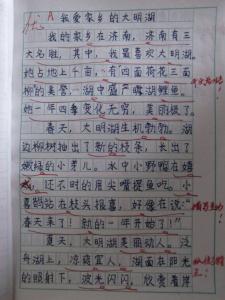 优 A 我爱家乡的大明湖
我的家乡在济南，济南有三
大名胜，其中，我最喜欢大明湖。
她占地上千亩，有四面荷花三面
柳的美誉，湖中盛产露湖鲤鱼。
她一年四季变化无穷，美丽极了。
春天，大明湖生机勃勃。湖
边柳树抽出了新的枝条，长出了
嫩绿的小芽儿。水中小野鸭在嬉
戏，还不时的用尖嘴捉鱼吃。小
喜鹊站在枝头报喜，好像在说：“
春天来了！新的一年开始了！”
夏天，大明湖美丽动人。泛
舟湖上，凉爽宜人。湖面在阳光
的照射下，波光闪闪，欣赏着岸